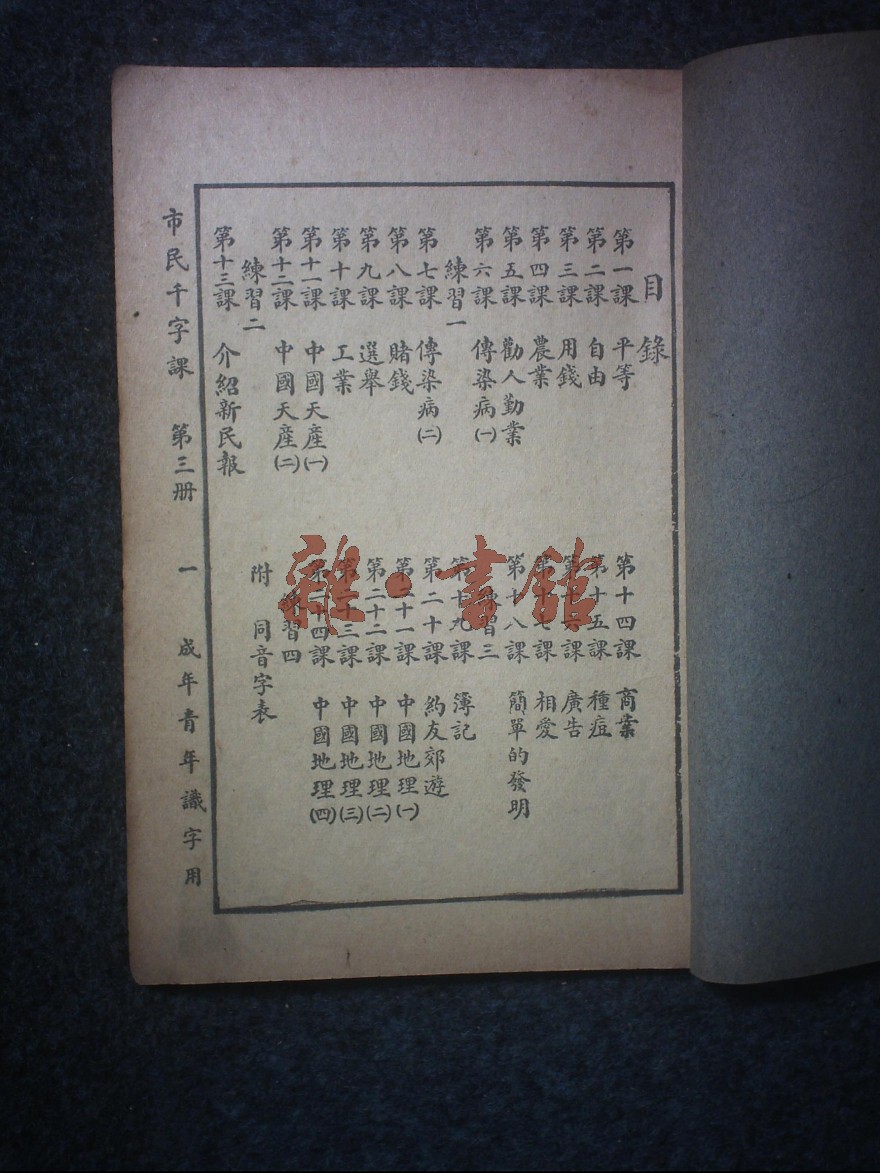 目錄
第一課 平等
第二課 自由
第三課 用錢
第四課 農業
第五課 勸人勤業
第六課 傳染病(一)
練習一
第七課 傳染病(二)
第八課 賭錢
第九課 選舉
第十課 工業
第十一課 中國天產(一)
第十二課 中國天產(二)
練習二
第十三課 介紹新民報
第十四課 商業
第十五課 種痘
第十六課 廣告
第十七課 相愛
第十八課 簡單的發明
練習三
第十九課 簿記
第二十課 約友郊遊
第二十一課 中國地理(一)
第二十二課 中國地理(二)
第二十三課 中國地理(三)
第二十四課 中國地理(四)
練習四
附 同音字表
市民千字課 第三册 一 成年青年識字用
雜·書館